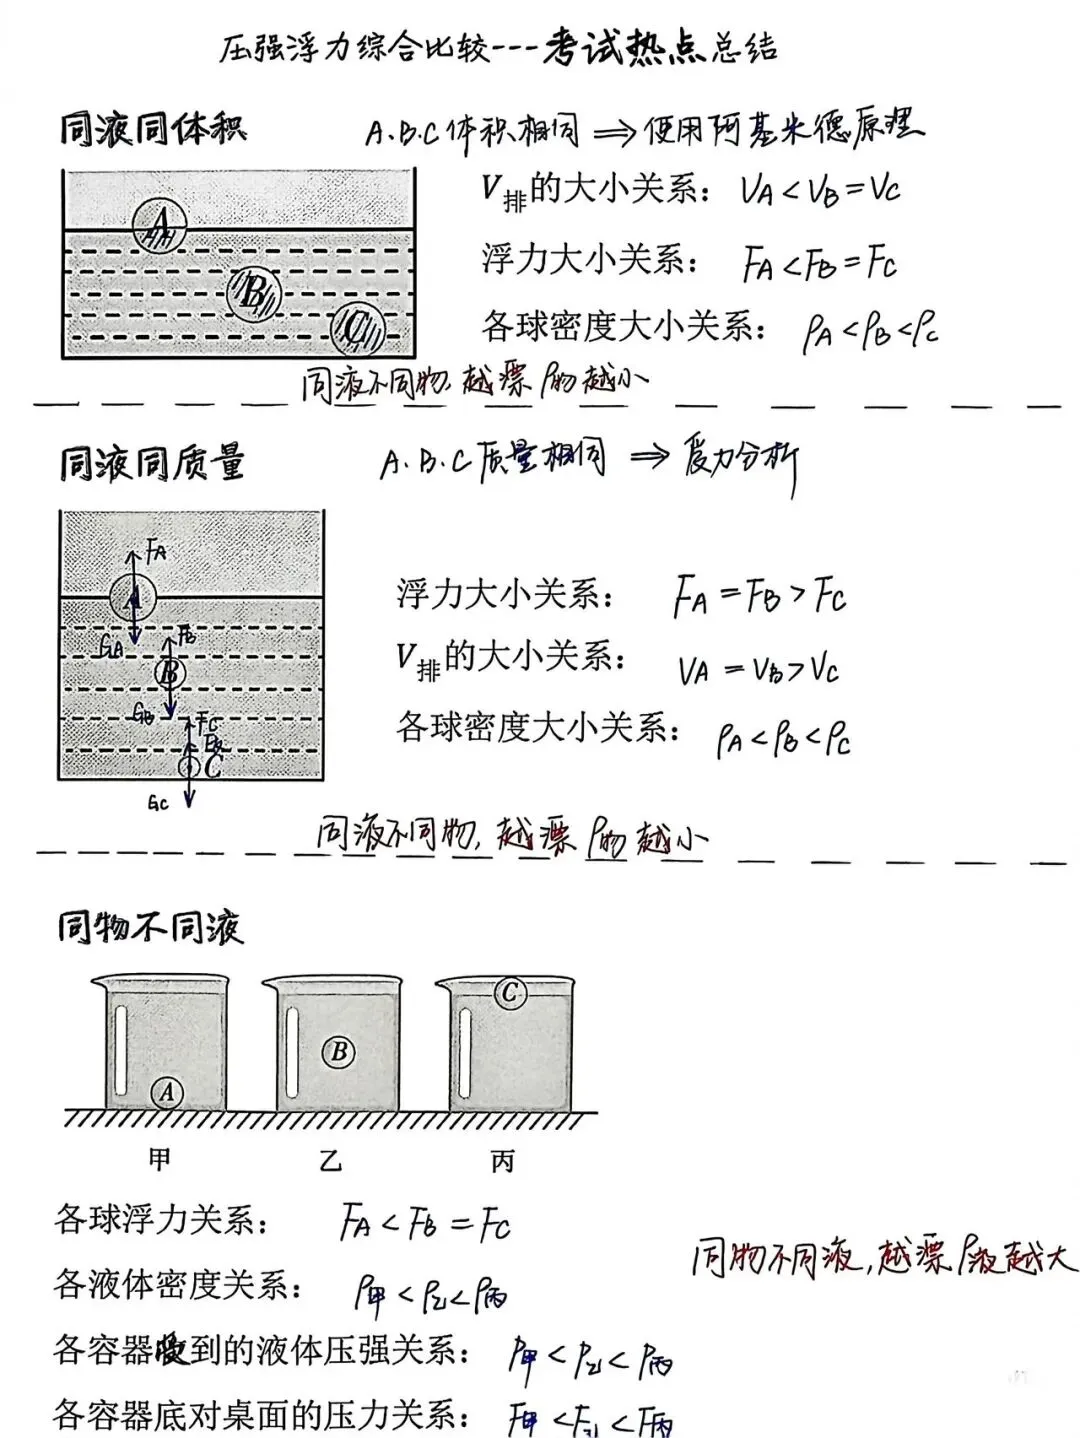 压强浮力综合比较---考试热点总结
同液同体积 A.B.C体积相同 ⇒使用阿基米德原理
V排的大小关系: VA<VB=VC
浮力大小关系: FA<FB=FC
各球密度大小关系: ρA<ρB<ρC
A
B
C
同液不同物,越漂ρ物越小
同液同质量 A.B.C质量相同 ⇒ 受力分析
FA
A
GA
FB
B
GB
FC
C
GC
浮力大小关系: FA=FB>FC
V排的大小关系: VA=VB>VC
各球密度大小关系: ρA<ρB<ρC
同液不同物,越漂ρ物越小
同物不同液
A
B
C
甲 乙 丙
各球浮力关系: FA<FB=FC
同物不同液,越漂ρ液越大
各液体密度关系: ρ甲<ρ乙<ρ丙
各容器受到的液体压强关系: P甲<P乙<P丙
各容器底对桌面的压力关系: F甲<F乙<F丙